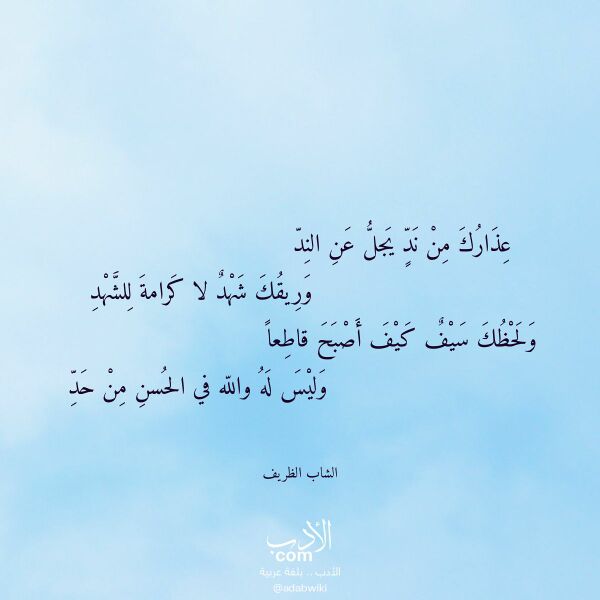 عِذَارُكَ مِنْ نَدٍّ يَجلُّ عَنِ النِدّ
وَرِيقُكَ شَهْدٌ لا كَرامةَ لِلشَّهْدِ
وَلَحْظُكَ سَيْفٌ كَيْفَ أَصْبَحَ قاطِعاً
وَليْسَ لَهُ واللّه في الحُسنِ مِنْ حَدِّ
الشاب الظريف
الأدب
.com
الأدب .. بلغة عربية
@adabwiki